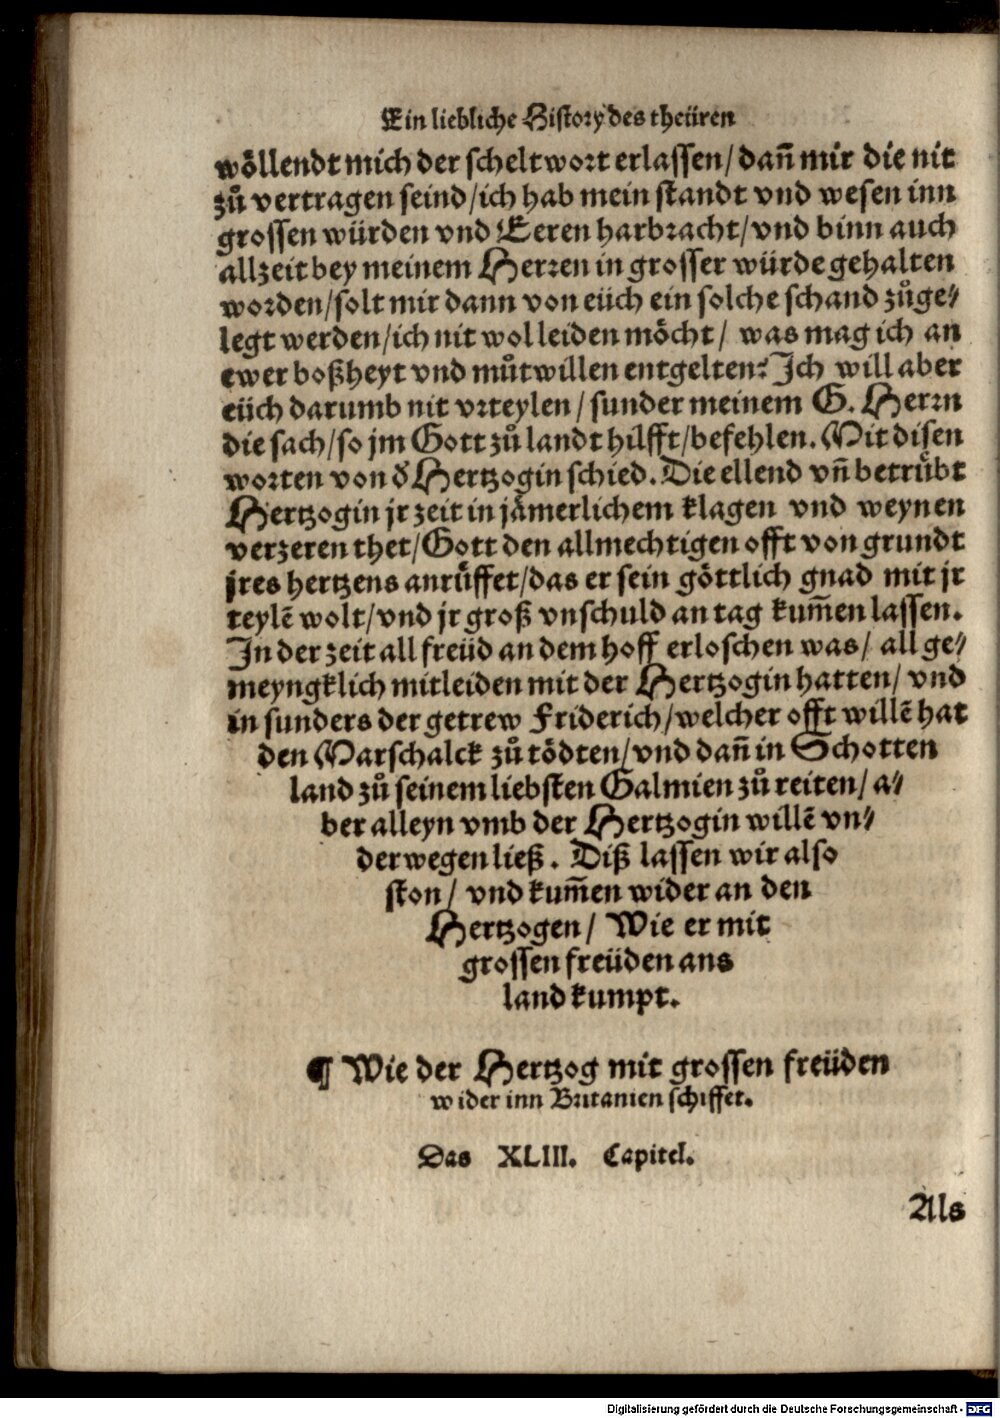 Ein liebliche History des theüren
wöllendt mich der scheltwort erlassen/ dañ mir die nit
zů vertragen seind/ich hab mein standt vnd wesen inn
grossen würden vnd Eeren harbracht/vnd binn auch
allzeit bey meinem Herren in grosser würde gehalten
worden/solt mir dann von eüch ein solche schand zůge-
legt werden/ich nit wol leiden möcht/ was mag ich an
ewer boßheyt vnd můtwillen entgelten? Ich will aber
eüch darumb nit vrteylen/ sunder meinem G. Herrn
die sach/so jm Gott zů landt hilfft/befehlen. Mit disen
worten von d̕ Hertzogin schied. Die ellend vñ betrůbt
Hertzogin jr zeit in jämerlichem klagen vnd weynen
verzeren thet/Gott den allmechtigen offt von grundt
jres hertzens anrůffet/das er sein göttlich gnad mit jr
teylē wolt/vnd jr groß vnschuld an tag kum̄en lassen.
In der zeit all freüd an dem hoff erloschen was/ all ge-
meyngklich mitleiden mit der Hertzogin hatten/ vnd
in sunders der getrew Friderich/welcher offt willē hat
den Marschalck zů tödten/vnd dañ in Schotten
land zů seinem liebsten Galmien zů reiten/ a-
ber alleyn vmb der Hertzogin willē vn-
derwegen ließ. Diß lassen wir also
ston/ vnd kum̄en wider an den
Hertzogen/ Wie er mit
grossen freüden ans
land kumpt.
¶ Wie der Hertzog mit grossen freüden
wider inn Britanien schiffet.
Das XLIII. Capitel.
Als
Digitalisierung gefördert durch die Deutsche Forschungsgemeinschaft - DFG